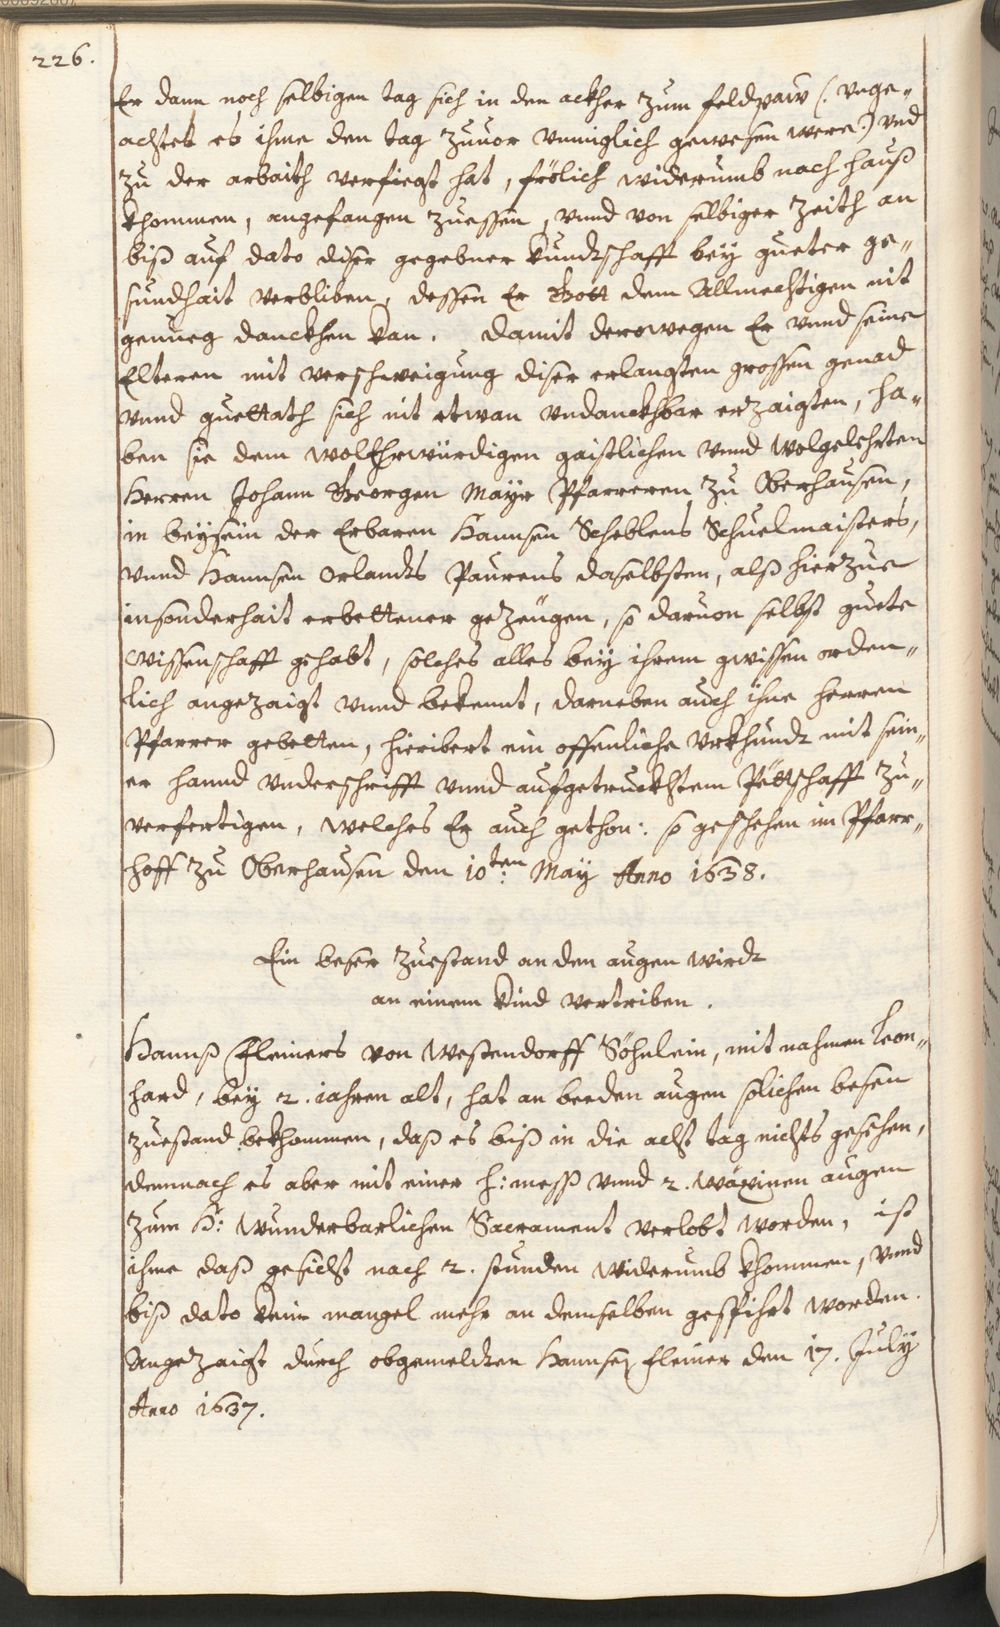 226.
Er dann noch selbigen tag sich in den ackher zum feldpaw (: vnge-
achtet es ihme den tag zuuor vnmiglich gewesen were:) vnd
zu der arbaith verfiegt hat, frölich widerumb nach hauß
khommen, angefangen zuessen, vnnd von selbiger zeith an
biß auf dato diser gegebner kundtschafft bey gueter ge-
sundhait verbliben, dessen Er Gott dem Allmechtigen nit
genueg danckhen kan. Damit derowegen Er vnnd seine
Elteren mit verschweigung diser erlangten grossen genad
vnnd guettath sich nit etwan vndanckhbar erzaigten, ha-
ben sie dem wolEhrwürdigen gaistlichen vnnd wolgelehrten
Herren Johann Georgen Mayr Pfarreren zu Oberhausen,
in beysein der Erbaren Hannsen Scheblens Schuelmaisters,
vnnd Hannsen Orlandts Paurens daselbsten, alß hierzue
insonderhait erbettener gezeugen, so daruon selbst guete
wissenschafft gehabt, solches alles bey ihrem gwissen orden-
lich angezaigt vnnd bekennt, darneben auch ihne herren
Pfarrer gebetten, hieribert ein offenliche Vrkhundt mit sein-
er hannd vnderschrifft vnnd aufgetruckhtem Pettschafft zu-
verfertigen, welches Er auch gethon: so geschehen im Pfarr-
hoff zu Oberhausen den 10ten: May Anno 1638.
Ein beser zuestand an den augen wirdt
an einem kind vertriben.
Hannß Fleiners von Westendorff Söhnlein, mit nahmen Leon-
hard, bey 2. iahren alt, hat an beeden augen solichen besen
zuestand bekhommen, daß es biß in die acht tag nichts gesehen,
demnach es aber mit einer h: mess vnnd 2. wäxinen augen
zum H: wunderbarlichen Sacrament verlobt worden, ist
ihme daß gesicht nach 2. stunden widerumb khommen, vnnd
biß dato kein mangel mehr an demselben gespihrt worden.
Angezaigt durch obgemeldten Hannsen Fleiner den 17. July
Anno 1637.